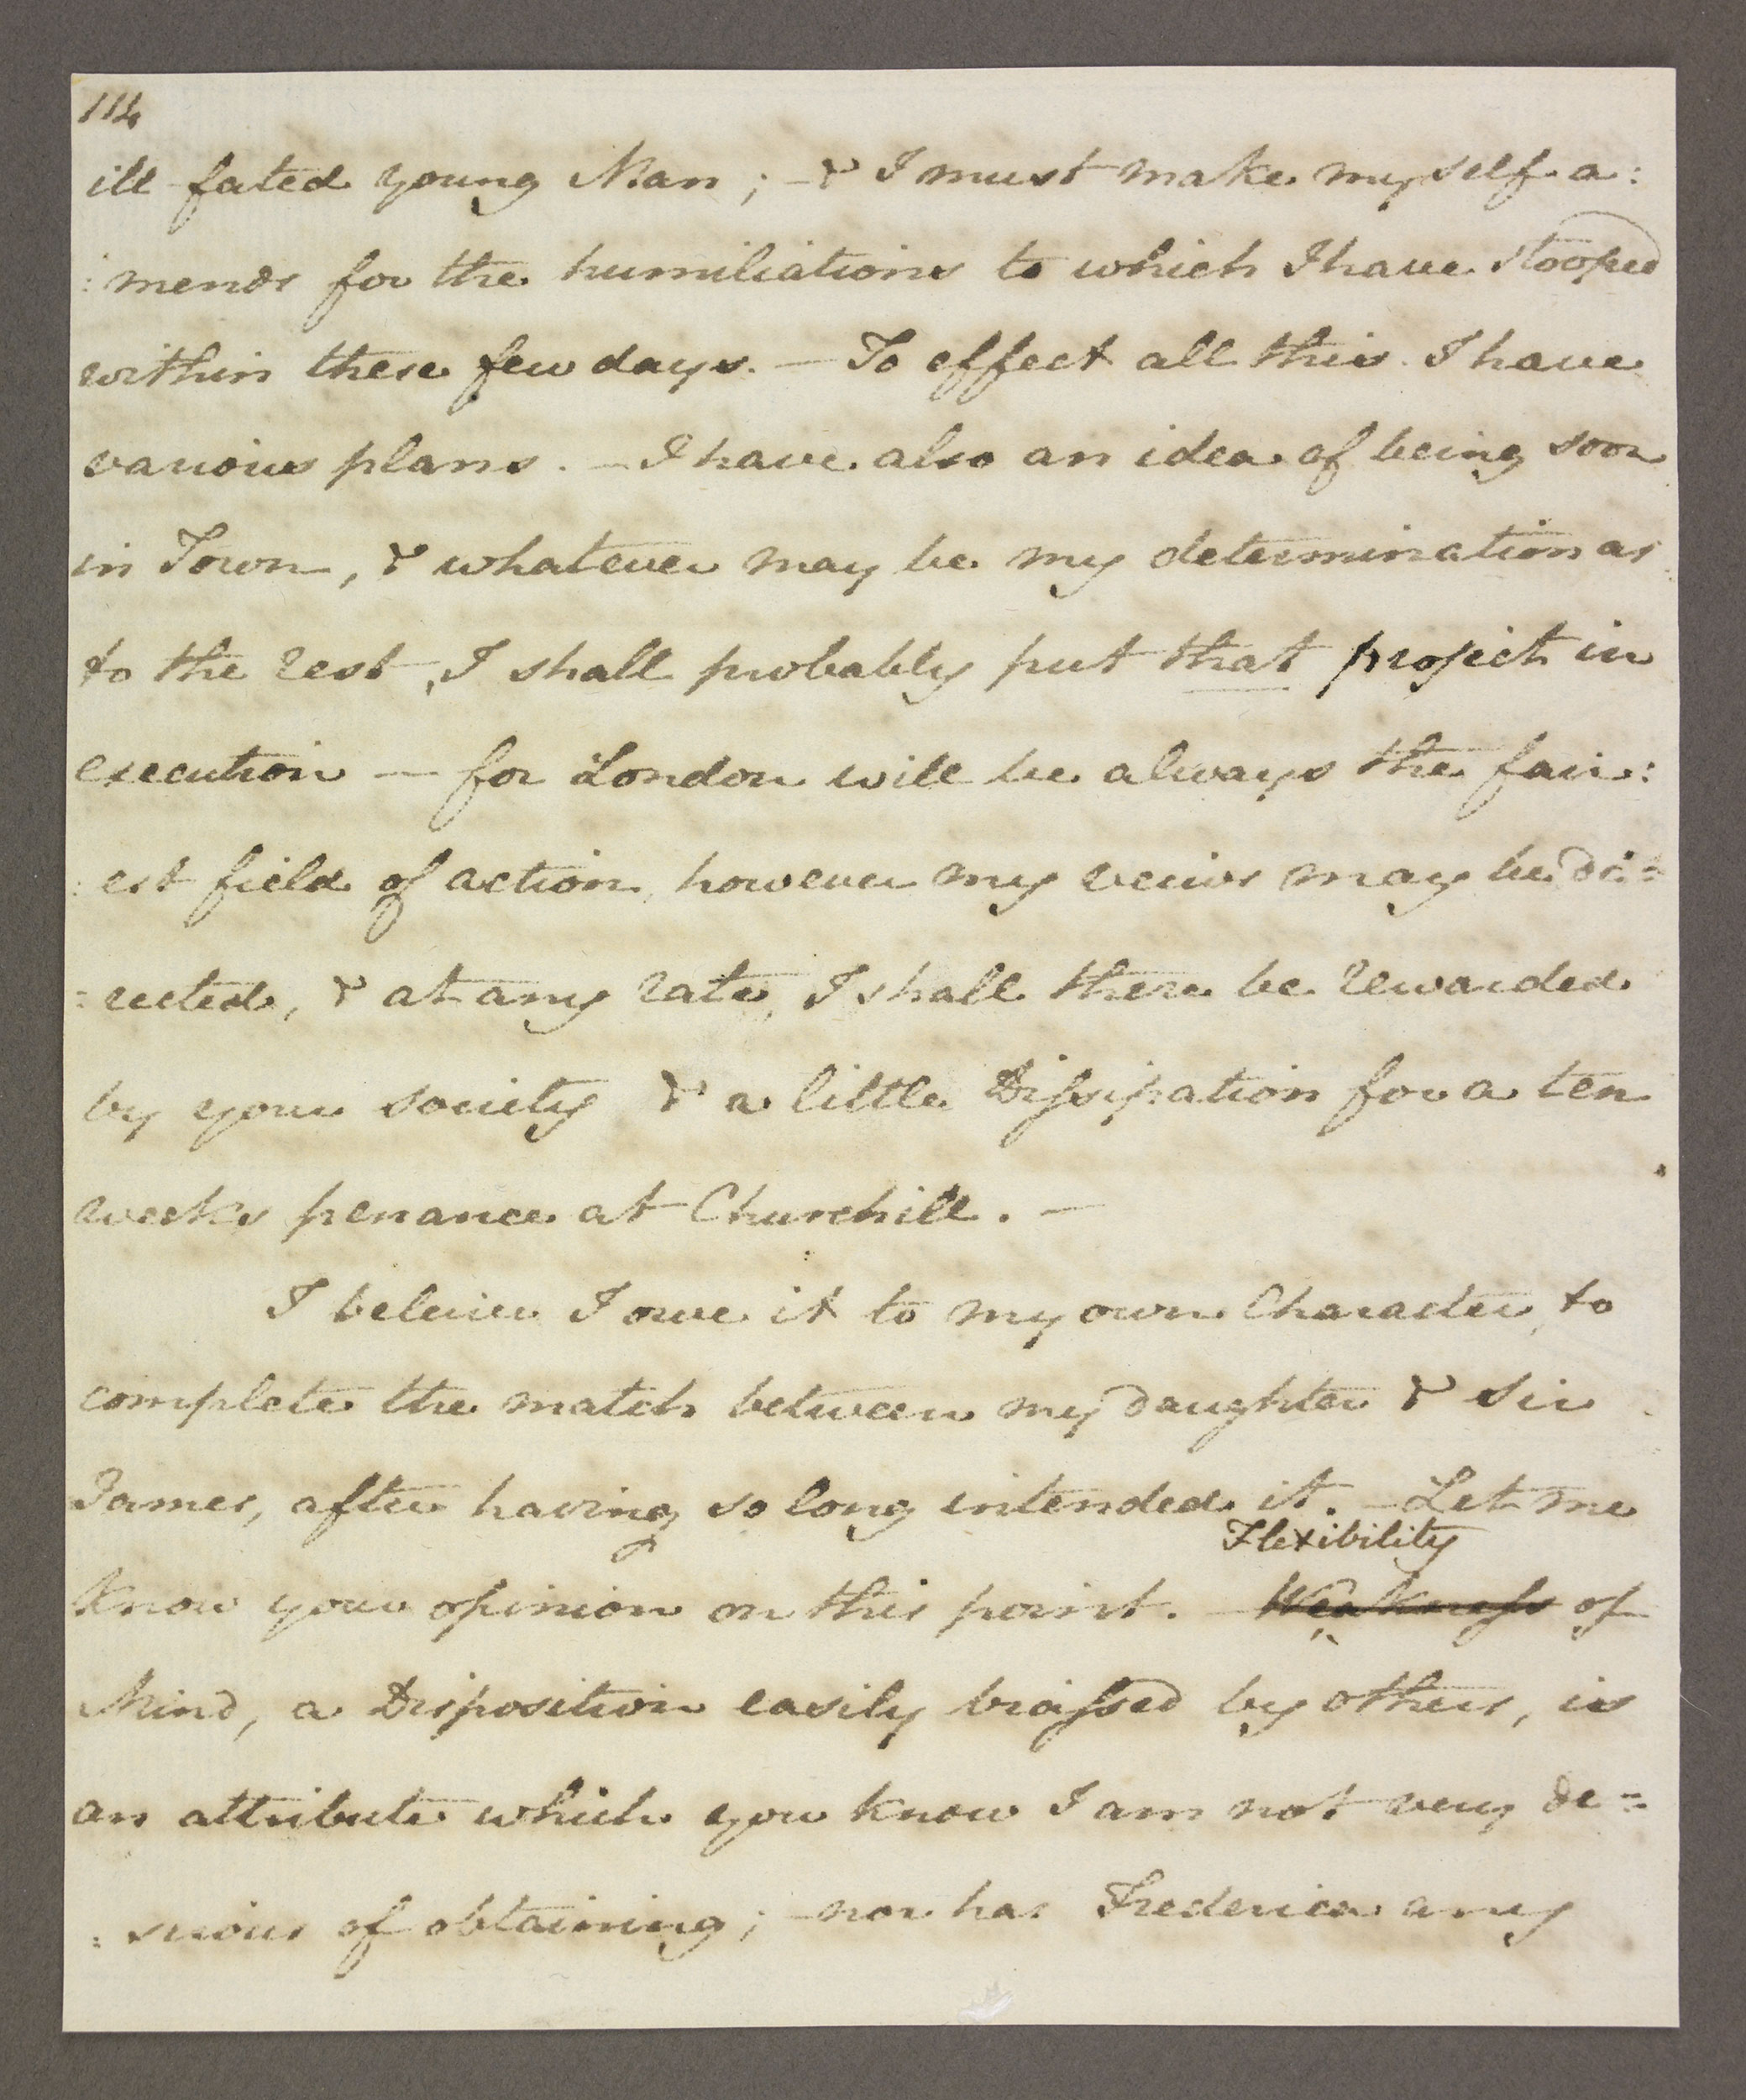 114
ill fated young Man; – & I must make myself a:
:mends for the humiliations to which I have stooped
within these few days. – To effect all this I have
various plans. – I have also an idea of being soon
in Town, & whatever may be my determination as
to the rest, I shall probably put that project in
execution – for London will be always the fair:
:est field of action, however my veiws may be di:
:rected, & at any rate, I shall there be rewarded
by your society & a little Dissipation for a ten
weeks penance at Churchill. –
I beleive I owe it to my own Character, to
complete the match between my daughter & Sir
James, after having so long intended it. – Let me
Flexibility
know your opinion on this point. – Weakness of
Mind, a Disposition easily biassed by others, is
an attribute which you know I am not very de=
:sirous of obtaining; – nor has Frederica any